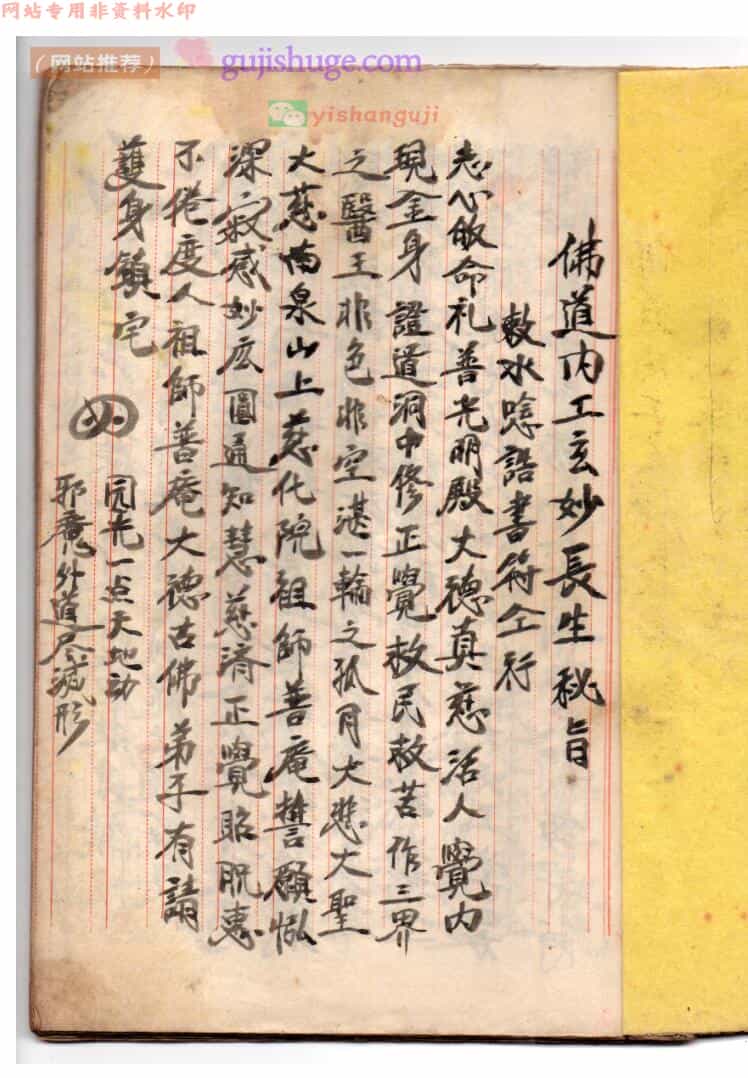 网站专用非资料水印
(网站推荐)
gujishuge.com
yishanguji
佛道内工玄妙長生秘旨
敕水唸語書符仝行
志心皈命礼普光明殿大德真慈活人覺内
現金身證道洞中修正覺救民救苦作三界
之醫王非色非空湛一輪之孤月大悲大聖
大慈南泉山上慈化院祖師普庵誓願弘
深寂感妙应圓通知慧慈済正覺昭貺惠
不倦度人祖師普庵大德古佛弟子有請
護身鎮宅
园光一点天地动
邪魔外道尽滅形